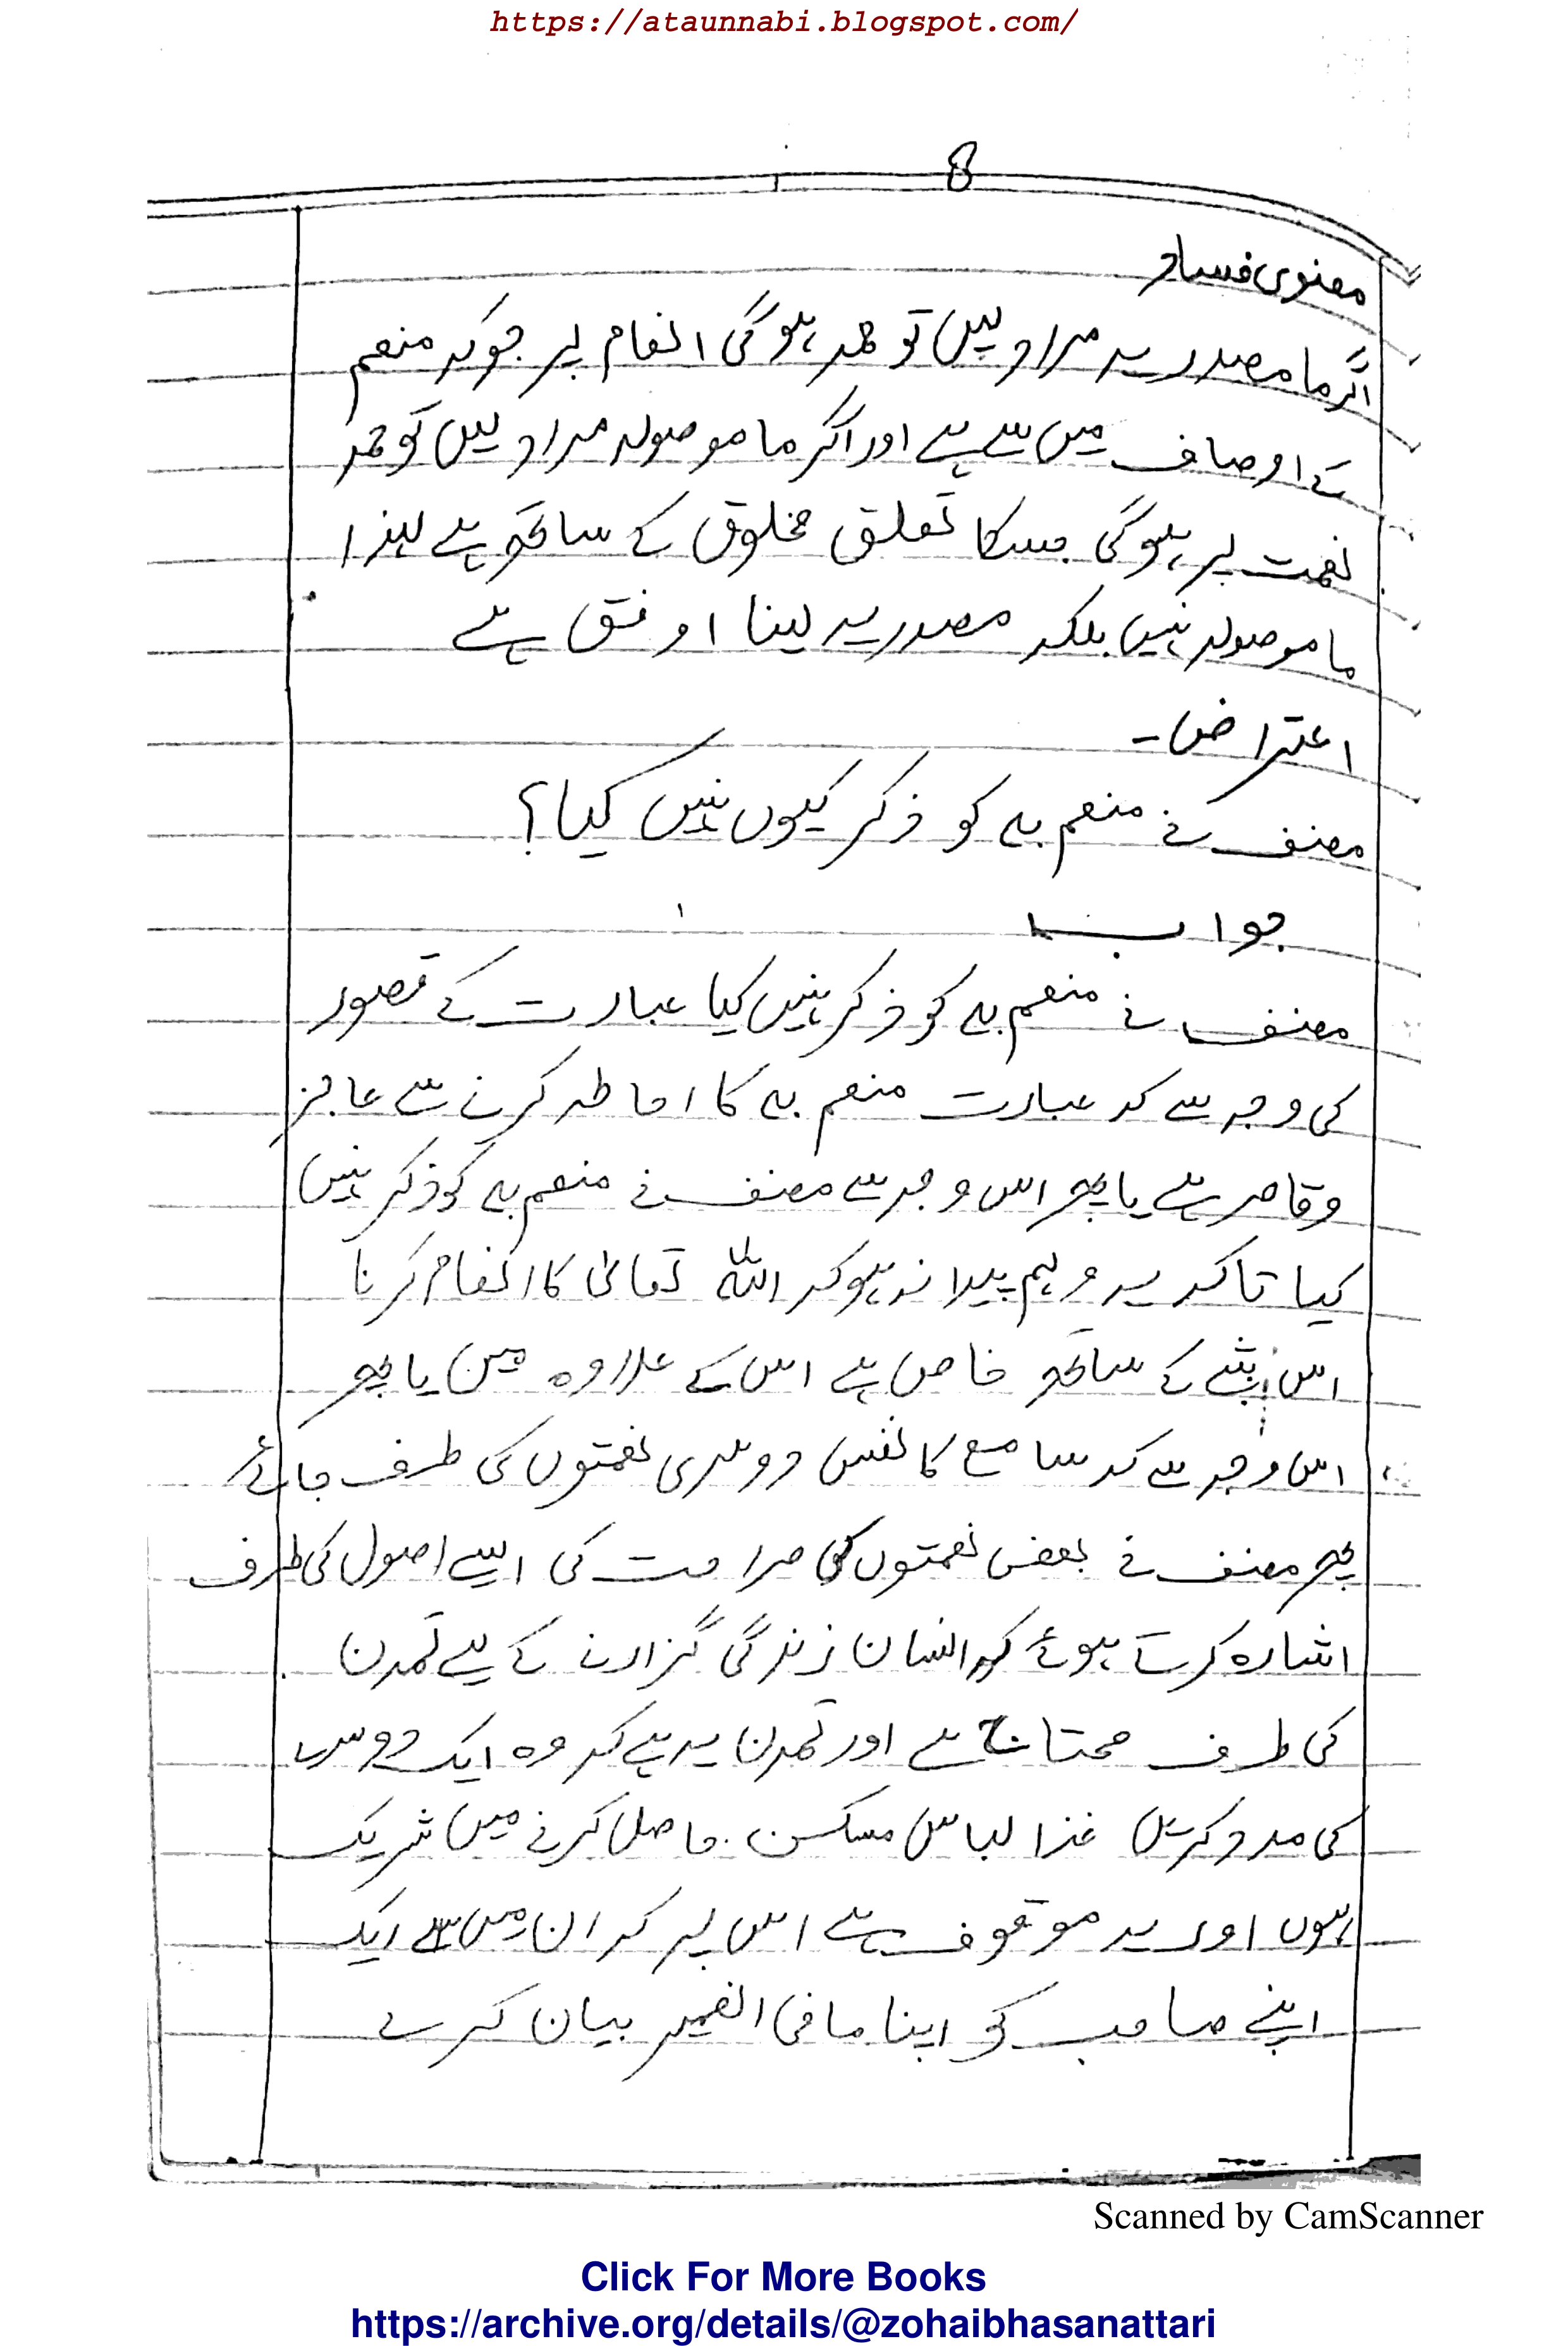 https://ataunnabi.blogspot.com/
8
معنوی فساد
اگر ما مصدریہ مراد لیں تو حمد ہوگی انعام پر جو کہ منعم
کے اوصاف میں سے ہے اور اگر ما موصولہ مراد لیں تو حمد
نعمت پر ہوگی جسکا تعلق مخلوق کے ساتھ ہے لہذا
ما موصولہ نہیں بلکہ مصدریہ لینا اوفق ہے
اعتراض -
مصنف نے منعم بہ کو ذکر کیوں نہیں کیا؟
جواب
مصنف نے منعم بہ کو ذکر نہیں کیا عبارت کے قصور
کی وجہ سے کہ عبارت منعم بہ کا احاطہ کرنے سے عاجز
و قاصر ہے یا پھر اس وجہ سے مصنف نے منعم بہ کو ذکر نہیں
کیا تاکہ یہ وہم پیدا نہ ہو کہ اللہ تعالیٰ کا انعام کرنا
اس شے کے ساتھ خاص ہے اس کے علاوہ میں یا پھر
اس وجہ سے کہ سامع کا نفس دوسری نعمتوں کی طرف جائے
پھر مصنف نے بعض نعمتوں کی صراحت کی ایسے اصول کی طرف
اشارہ کرتے ہوئے کہ انسان زندگی گزارنے کے لیے تمدن
کی طرف محتاج ہے اور تمدن یہ ہے کہ وہ ایک دوسرے
کی مدد کریں غذا لباس مسکن حاصل کرنے میں شریک
ہوں اور یہ موقوف ہے اس پر کہ ان میں سے ایک
اپنے صاحب کو اپنا ما فی الضمیر بیان کرے
Scanned by CamScanner
Click For More Books
https://archive.org/details/@zohaibhasanattari